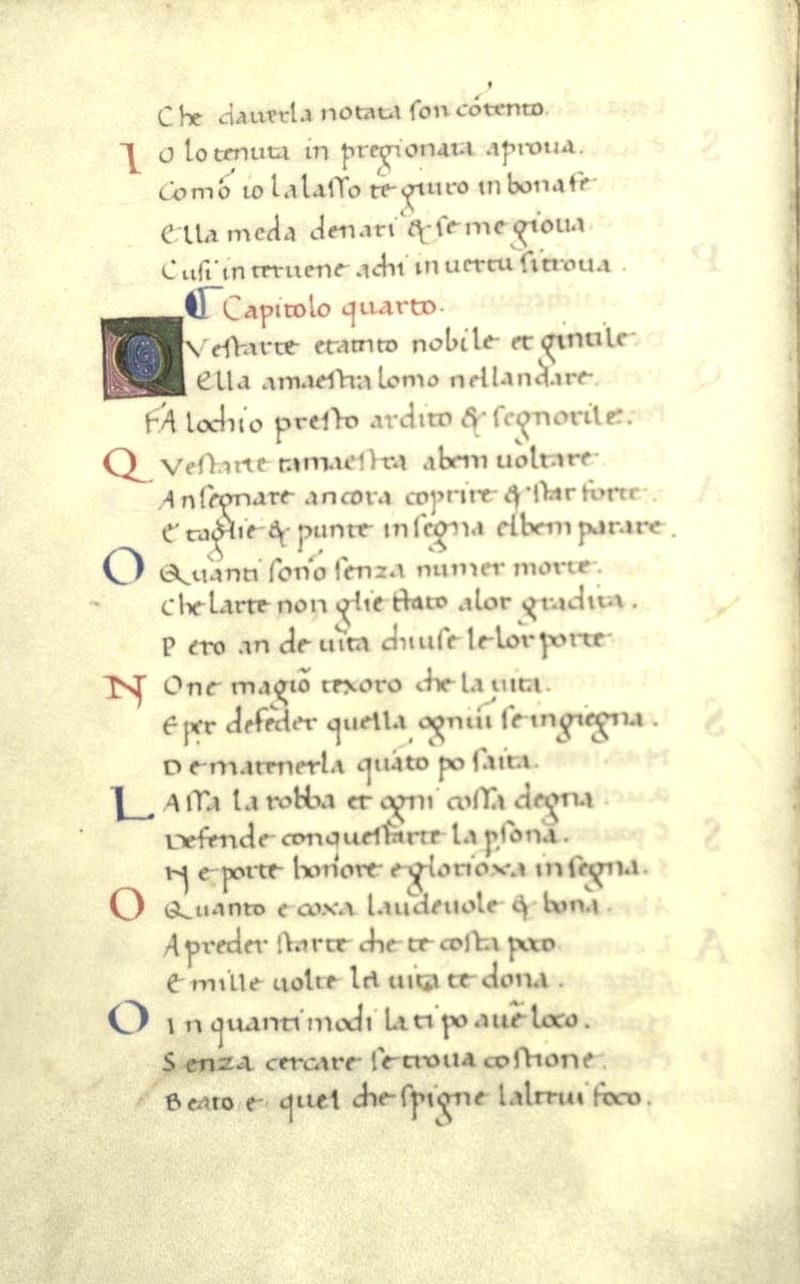 Che dauerla notata son cōtento.
IO lo tenuta in pregionata aproua.
Como io lalasso te giuro in bona fe
Ella me da denari & se me gioua
Cusi interuene achi in uertu si troua .
¶ Capitolo quarto.
QVestarte e tanto nobile et gintile
Ella amaestra lomo nellandare.
FA lochio presto ardito & segnorile.
QVestarte tamaestra a bem uoltare
Ansegnare ancora coprire & star forte .
E taglie & punte insegna el bem parare .
O Quanti sono senza numer morte .
Che larte non glie stato alor gradita .
Pero an de uita chiuse le lor porte
NOne magiō texoro che la uita .
E per defeder quella ogniū se ingiegna .
De matenerla quāto po saita .
LAssa la robba et ogni cossa degna
Defende con questarte la psona .
Ne porte honore e glorioxa insegna .
O Quanto e coxa laudeuole & bona .
A preder starte che te costa poco
E mille uolte la uita te dona .
O in quanti modi la ti po auē loco .
Senza cercare se troua costione .
Beato e quel che spigne laltrui foco .